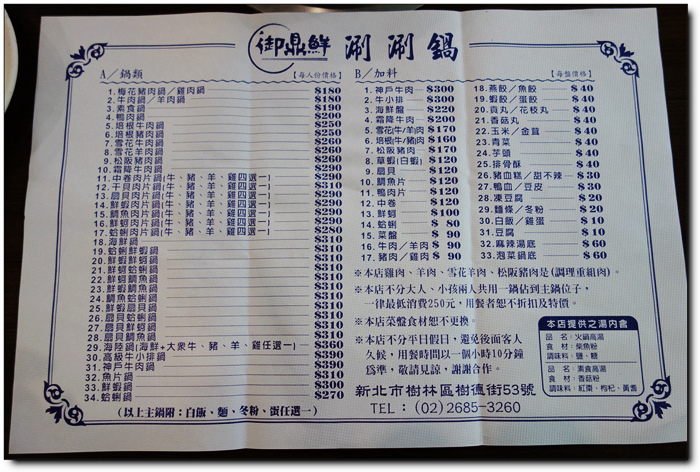 御鼎鮮 涮涮鍋
A／鍋類 【每人份價格】
1. 梅花豬肉鍋／雞肉鍋 $180
2. 牛肉鍋／羊肉鍋 $180
3. 素食鍋 $190
4. 鴨肉鍋 $200
5. 培根牛肉鍋 $250
6. 培根豬肉鍋 $250
7. 雪花牛肉鍋 $260
8. 雪花羊肉鍋 $260
9. 松阪豬肉鍋 $260
10. 霜降牛肉鍋 $290
11. 中卷肉片鍋(牛、豬、羊、雞四選一) $290
12. 干貝肉片鍋(牛、豬、羊、雞四選一) $290
13. 扇貝肉片鍋(牛、豬、羊、雞四選一) $290
14. 鮮蝦肉片鍋(牛、豬、羊、雞四選一) $290
15. 鯛魚肉片鍋(牛、豬、羊、雞四選一) $280
16. 鮮蚵肉片鍋(牛、豬、羊、雞四選一) $280
17. 蛤蜊肉片鍋(牛、豬、羊、雞四選一) $280
18. 海鮮鍋 $310
19. 蛤蜊鮮蝦鍋 $310
20. 鮮蝦鮮蚵鍋 $310
21. 鮮蚵蛤蜊鍋 $310
22. 鮮蝦鯛魚鍋 $310
23. 鮮蚵鯛魚鍋 $310
24. 鯛魚蛤蜊鍋 $310
25. 扇貝蛤蜊鍋 $310
26. 鮮蝦扇貝鍋 $310
27. 扇貝鮮蚵鍋 $310
28. 扇貝鯛魚鍋 $310
29. 海陸鍋(海鮮+大眾牛、豬、羊、雞任選一) $360
30. 高級牛小排鍋 $390
31. 神戶牛肉鍋 $390
32. 魚片鍋 $310
33. 鮮蚵鍋 $300
34. 蛤蜊鍋 $270
(以上主鍋附：白飯、麵、冬粉、蛋任選一)
B／加料 【每盤價格】
1. 神戶牛肉 $300
2. 牛小排 $300
3. 海鮮盤 $220
4. 霜降牛肉 $200
5. 雪花(牛/羊)肉 $170
6. 培根(牛/豬)肉 $160
7. 松阪豬肉 $170
8. 草蝦(白蝦) $120
9. 扇貝 $120
10. 鯛魚片 $120
11. 鴨肉片 $120
12. 中卷 $120
13. 鮮蚵 $100
14. 蛤蜊 $ 80
15. 菜盤 $ 90
16. 牛肉／羊肉 $ 90
17. 豬肉／雞肉 $ 90
18. 燕餃／魚餃 $ 40
19. 蝦餃／蛋餃 $ 40
20. 貢丸／花枝丸 $ 40
21. 香菇丸 $ 40
22. 玉米／金茸 $ 40
23. 青菜 $ 40
24. 芋頭 $ 40
25. 排骨酥 $ 40
26. 豬血糕／甜不辣 $ 30
27. 鴨血／豆皮 $ 30
28. 凍豆腐 $ 20
29. 麵條／冬粉 $ 20
30. 白飯／雞蛋 $ 10
31. 豆腐 $ 10
32. 麻辣湯底 $ 60
33. 泡菜鍋底 $ 60
※本店雞肉、羊肉、雪花羊肉、松阪豬肉是(調理重組肉)。
※本店不分大人、小孩兩人共用一鍋佔到主鍋位子，
一律最低消費250元，用餐者恕不折扣及特價。
※本店菜盤食材恕不更換。
※本店不分平日假日，避免後面客人
久候，用餐時間以一個小時10分鐘
為準，敬請見諒，謝謝合作。
本店提供之湯內會
品 名：火鍋高湯
食 材：柴魚粉
調味料：鹽、糖
品 名：素食高湯
食 材：香菇粉
調味料：紅棗、枸杞、黃耆
新北市樹林區樹德街53號
TEL：(02)2685-3260